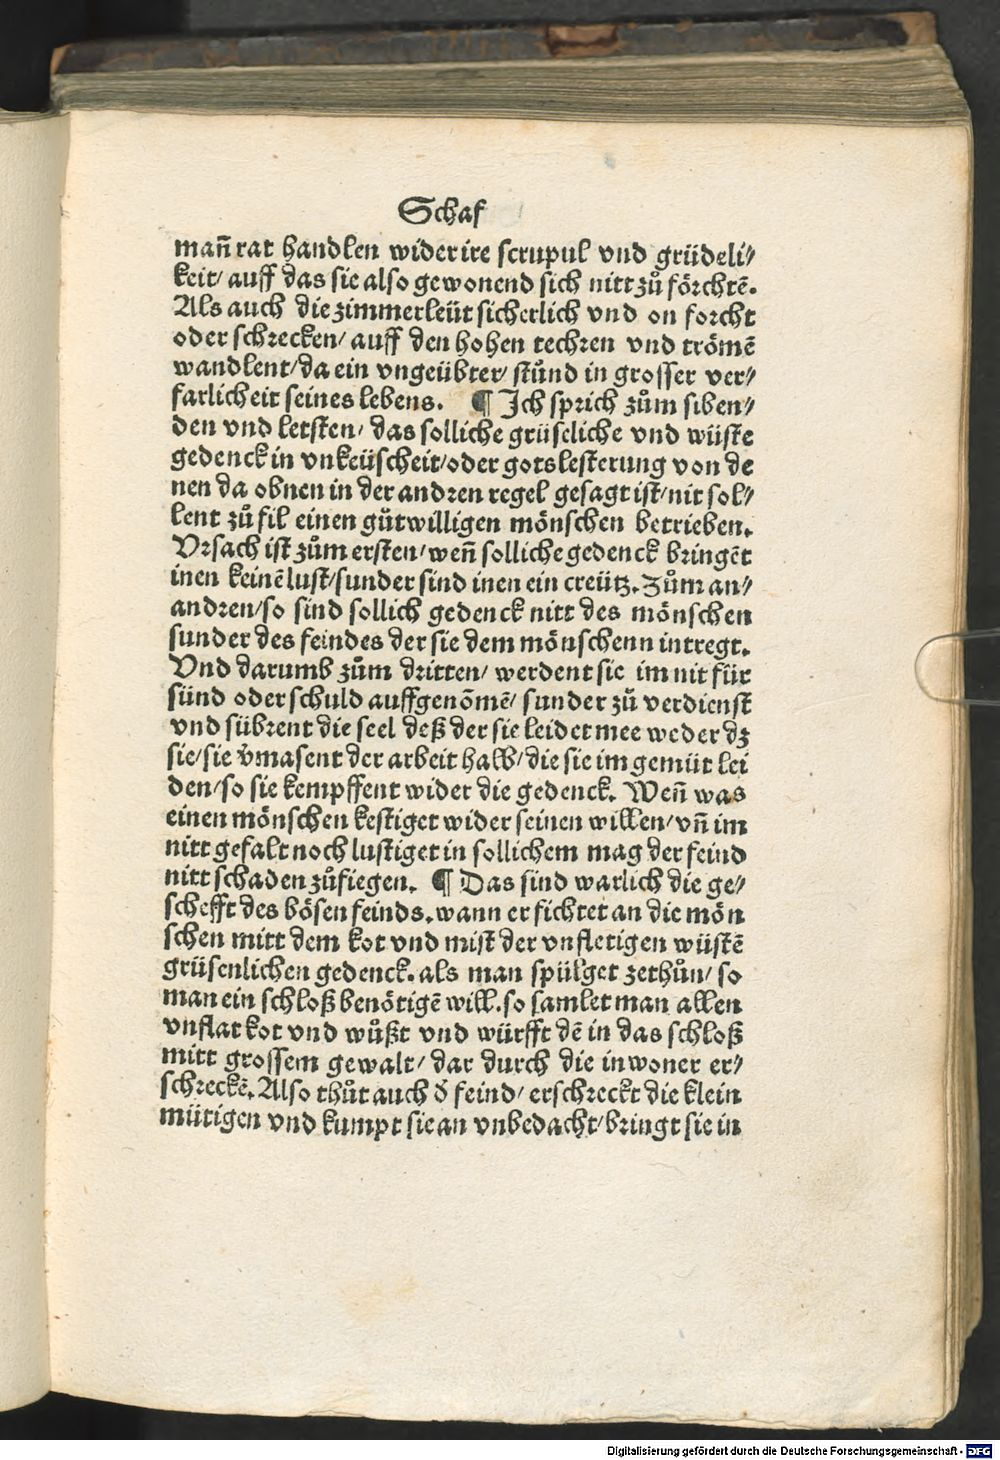 Schaf
mañ rat handlen wider ire scrupul vnd grüdeli⸗
keit/ auff das sie also gewonend sich nitt zů förchtē.
Als auch die zimmerleüt sicherlich vnd on forcht
oder schrecken/ auff den hohen techren vnd trömē
wandlent/ da ein vngeübter/ stůnd in grosser ver⸗
farlicheit seines lebens. ¶ Jch sprich zům siben⸗
den vnd letsten/ das solliche grüseliche vnd wüste
gedenck in vnkeüscheit/ oder gotslesterung von de
nen da obnen in der andren regel gesagt ist/ nit sol⸗
lent zů fil einen gůtwilligen mönschen betrieben.
Vrsach ist zům ersten/ weñ solliche gedenck bringēt
inen keinē lust/ sunder sind inen ein creütz. Zům an⸗
andren/ so sind sollich gedenck nitt des mönschen
sunder des feindes der sie dem mönschenn intregt.
Vnd darumb zům dritten/ werdent sie im nit für
sünd oder schuld auffgenōmē/ sunder zů verdienst
vnd sübrent die seel deß der sie leidet mee weder dz
sie/ sie v̄masent der arbeit halb/ die sie im gemüt lei
den/ so sie kempffent wider die gedenck. Weñ was
einen mönschen kestiget wider seinen willen/ vñ im
nitt gefalt noch lustiget in sollichem mag der feind
nitt schaden zůfiegen. ¶ Das sind warlich die ge⸗
schefft des bösen feinds. wann er fichtet an die mön
schen mitt dem kot vnd mist der vnfletigen wüstē
grüsenlichen gedenck. als man spülget zethůn/ so
man ein schloß benötigē will. so samlet man allen
vnflat kot vnd wůßt vnd würfft dē in das schloß
mitt grossem gewalt/ dar durch die inwoner er⸗
schreckē. Also thůt auch ð feind/ erschreckt die klein
mütigen vnd kumpt sie an vnbedacht/ bringt sie in
Digitalisierung gefördert durch die Deutsche Forschungsgemeinschaft - DFG